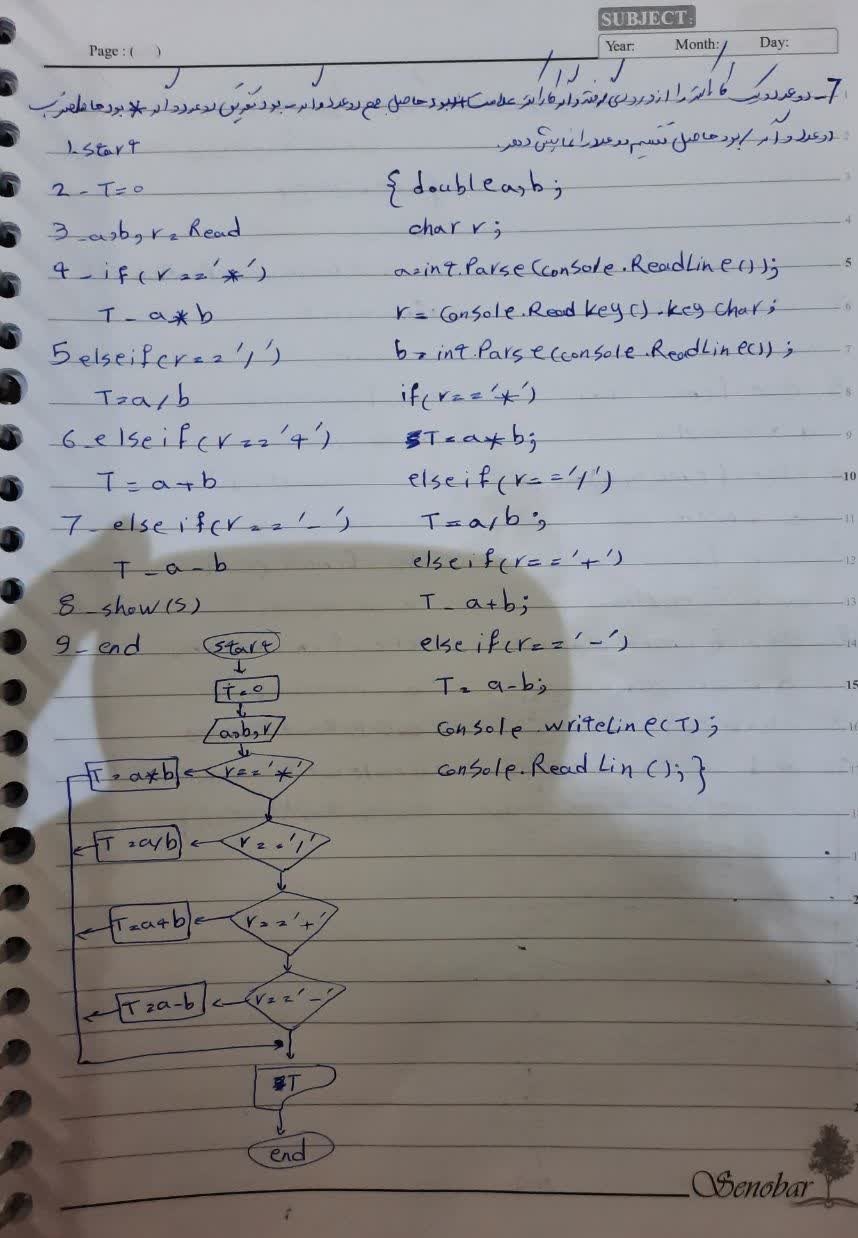 SUBJECT:
Page : ( )
Year: Month: Day:
7- دو عدد و یک کاراکتر را از ورودی گرفته و اگر کاراکتر علامت + بود حاصل جمع دو عدد و اگر - بود تفریق دو عدد و اگر * بود حاصلضرب
دو عدد و اگر / بود حاصل تقسیم دو عدد را نمایش دهد.
1. start
2 - T=0
3 - a,b,r = Read
4 - if(r=='*')
T = a*b
5 elseif(r=='/')
T=a/b
6 - elseif(r=='+')
T = a+b
7 - elseif(r=='-')
T = a-b
8 - show(S)
9 - end
{ double a,b;
char r;
a=int.Parse(console.ReadLine());
r = console.Readkey().keychar;
b = int.Parse(console.ReadLine());
if(r=='*')
T=a*b;
elseif(r=='/')
T=a/b;
elseif(r=='+')
T = a+b;
elseif(r=='-')
T= a-b;
Console.writeLine(T);
Console.ReadLin();}
start
T=0
a,b,r
r=='*'
T=a*b
r=='/'
T=a/b
r=='+'
T=a+b
r=='-'
T=a-b
T
end
5
6
7
8
9
10
11
12
13
14
15
Senobar